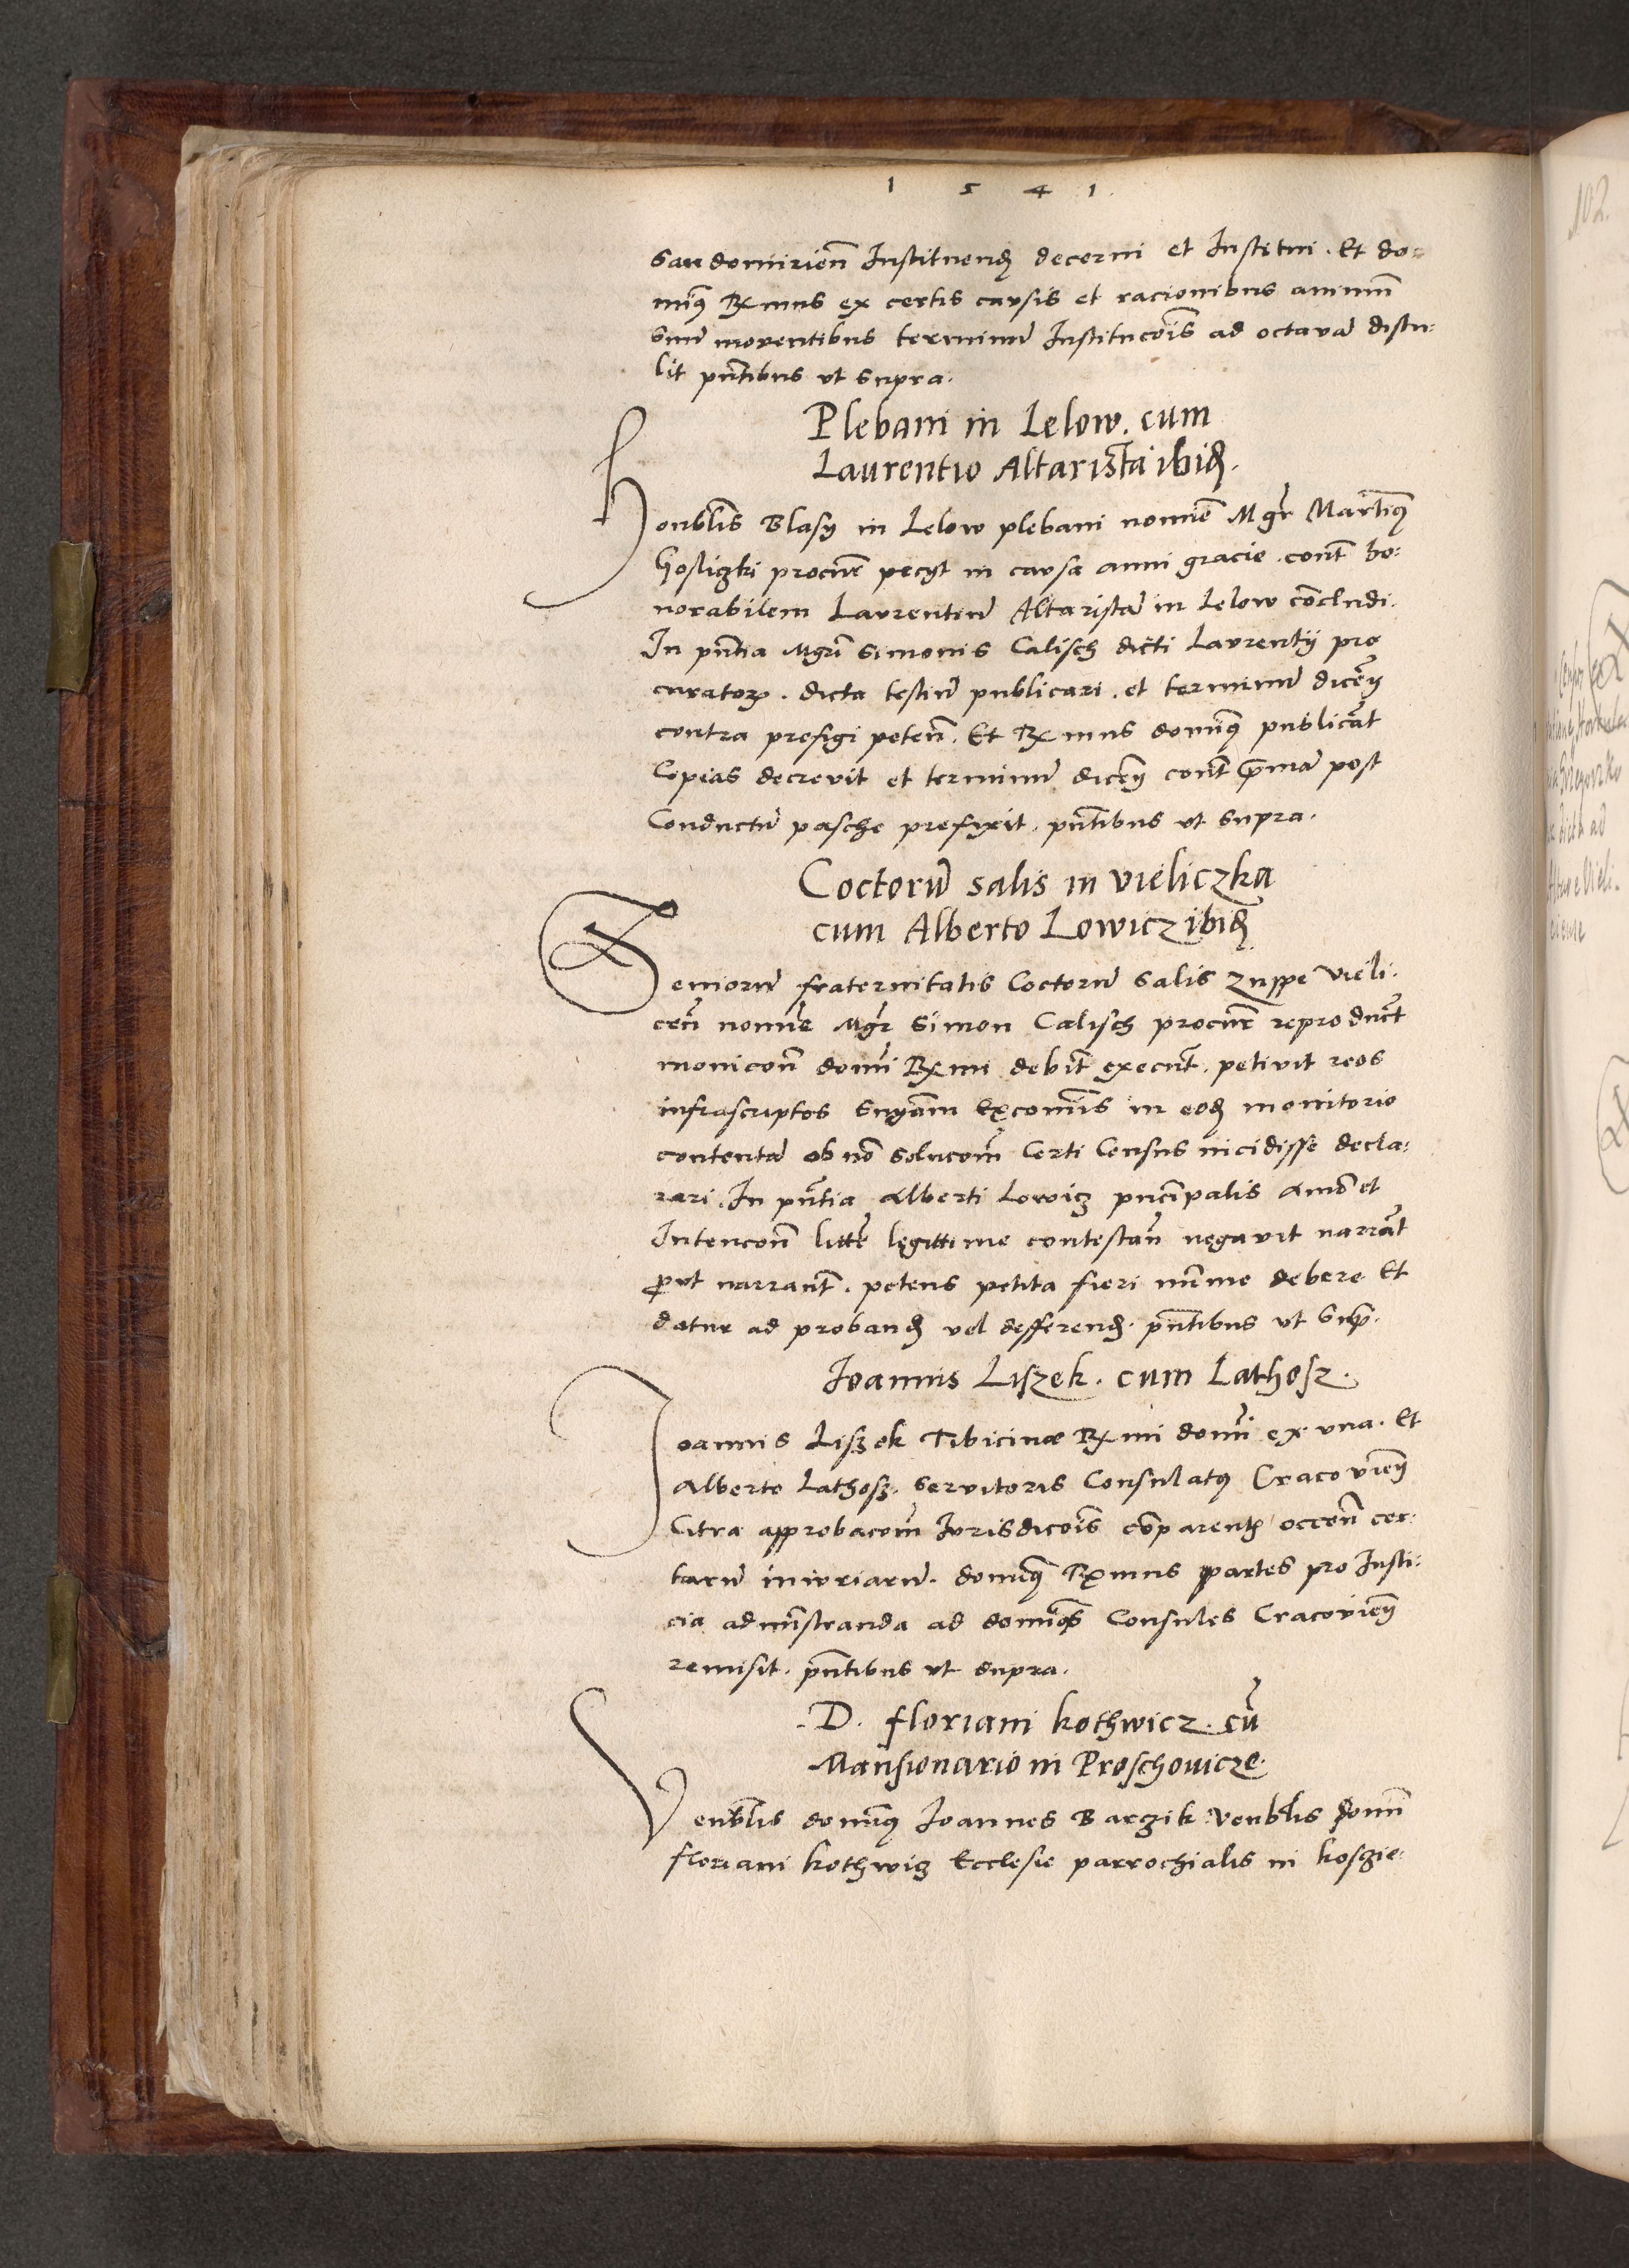 1541.
Sandomirien̄ Instituend̨ decerni et Institui. Et do=
minꝰ Rx̄mus ex certis causis et racionibus animū
suū moventibus terminū Institucōis ad octavā distu=
lit pn̄tibus vt supra.
Plebani in Lelow. cum
Laurentio Altarista ibid̨.
Honbl̄is Blasy in Lelow plebani nomīe Mgr̄ Martinꝰ
Gosliczki procur̄ pecyt in causa anni gracie. cont̄ ho=
norabilem Laurentiū Altaristā in Lelow cōcludi.
In pn̄tia Mgr̄i Simonis Calisch dicti Laurentij pro
curatoꝝ. dicta testiū publicari. et terminū dicen̄
contra prefigi peten̄. Et Rx̄mus dominꝰ publicāt
Copias decrevit et terminū dicen̄ cont̄ p̄mā post
Conductū pasche prefixit. pn̄tibus vt supra.
Coctorū salis in vieliczka
cum Alberto Lowicz ibid̨
Seniorū fraternitatis Coctorū salis zuppe vieli.
cen̄ nomīe Mgr̄ Simon Calisch procur̄ reproduct̄
monicōn̄ domī Rx̄mi debit̄ execut̄. petivit reos
infrascriptos snīam Excomīs in eod̨ monitorio
contentā ob nō solucōm̄ Certi Census incidisse decla=
rari. In pn̄tia Alberti Lowicz pn̄cipalis Animo et
Intencōn̄ litt̄e legittime contestan̄ negavit narrāt
ꝓut narrant̄. petens petita fieri minime debere Et
datur ad proband̨ vel defferend̨. pn̄tibus vt sup̄.
Joannis Liszek. cum Lathosz.
Joannis Liszek Tibicinæ Rx̄mi domī ex vna. Et
Alberto Lathosz. servitoris Consulatꝰ Cracovien̄
Citra approbacōm̄ Jurisdicōis cōparent̄ occōn̄ cer=
tarū iniuriarū. dominꝰ Rx̄mus partes pro Justi=
cia administranda ad domīos Consules Cracovien̄
remisit. pn̄tibus vt supra.
.D. floriani kothwicz. cū
Mansionario in Proschovicze.
Venbl̄is dominꝰ Joannes Barzik venbl̄is domī
floriani kothwicz Ecclesie parrochialis in koszie=
102.